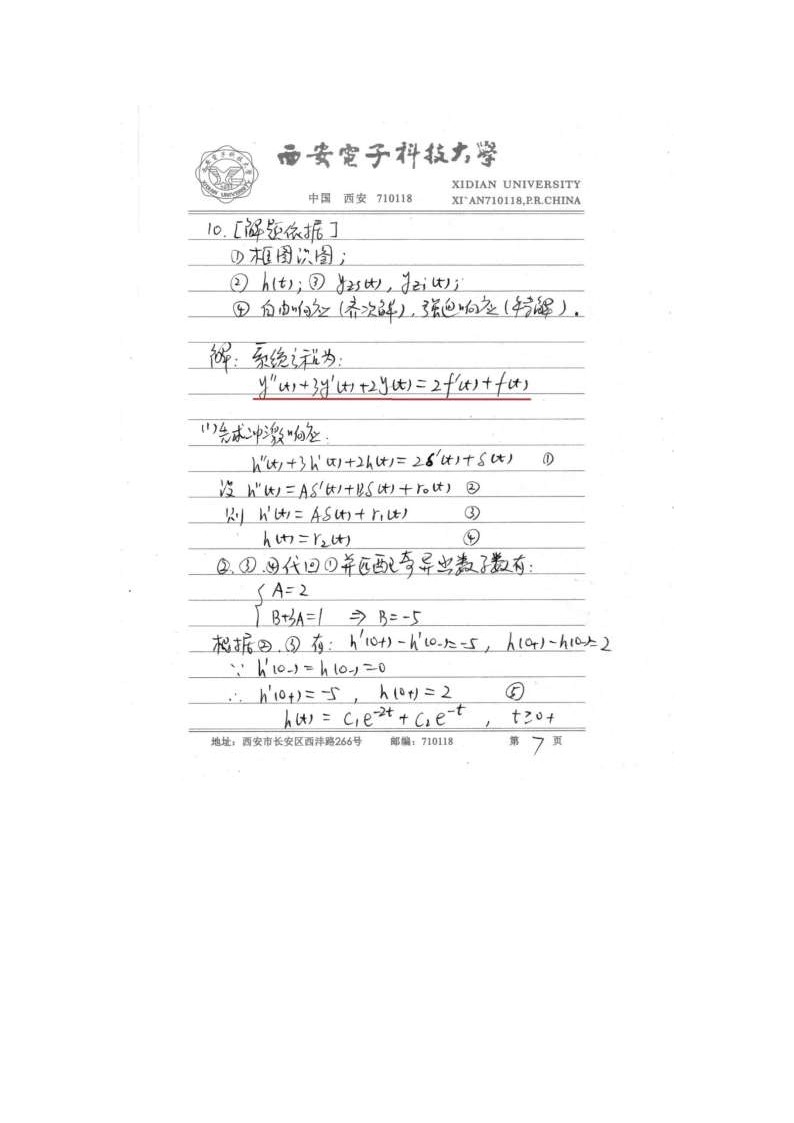 西安電子科技大學
XIDIAN UNIVERSITY
中国 西安 710118 XI`AN710118,P.R.CHINA
10. [解题依据]
① 框图识图;
② h(t); ③ yzs(t), yzi(t);
④ 自由响应(齐次解), 强迫响应(特解).
解: 系统方程为:
y''(t)+3y'(t)+2y(t)=2f'(t)+f(t)
(1) 先求冲激响应:
h''(t)+3h'(t)+2h(t)=2δ'(t)+δ(t) ①
设 h''(t)=Aδ'(t)+Bδ(t)+r₀(t) ②
则 h'(t)=Aδ(t)+r₁(t) ③
h(t)=r₂(t) ④
②.③.④代回①并匹配奇异函数系数有:
{ A=2
B+3A=1 ⇒ B=-5
根据②.③有: h'(0+)-h'(0-)=-5, h(0+)-h(0-)=2
∵ h'(0-)=h(0-)=0
∴ h'(0+)=-5, h(0+)=2 ⑤
h(t) = C₁e^-2t + C₂e^-t, t≥0+
地址: 西安市长安区西沣路266号 邮编: 710118 第 7 页